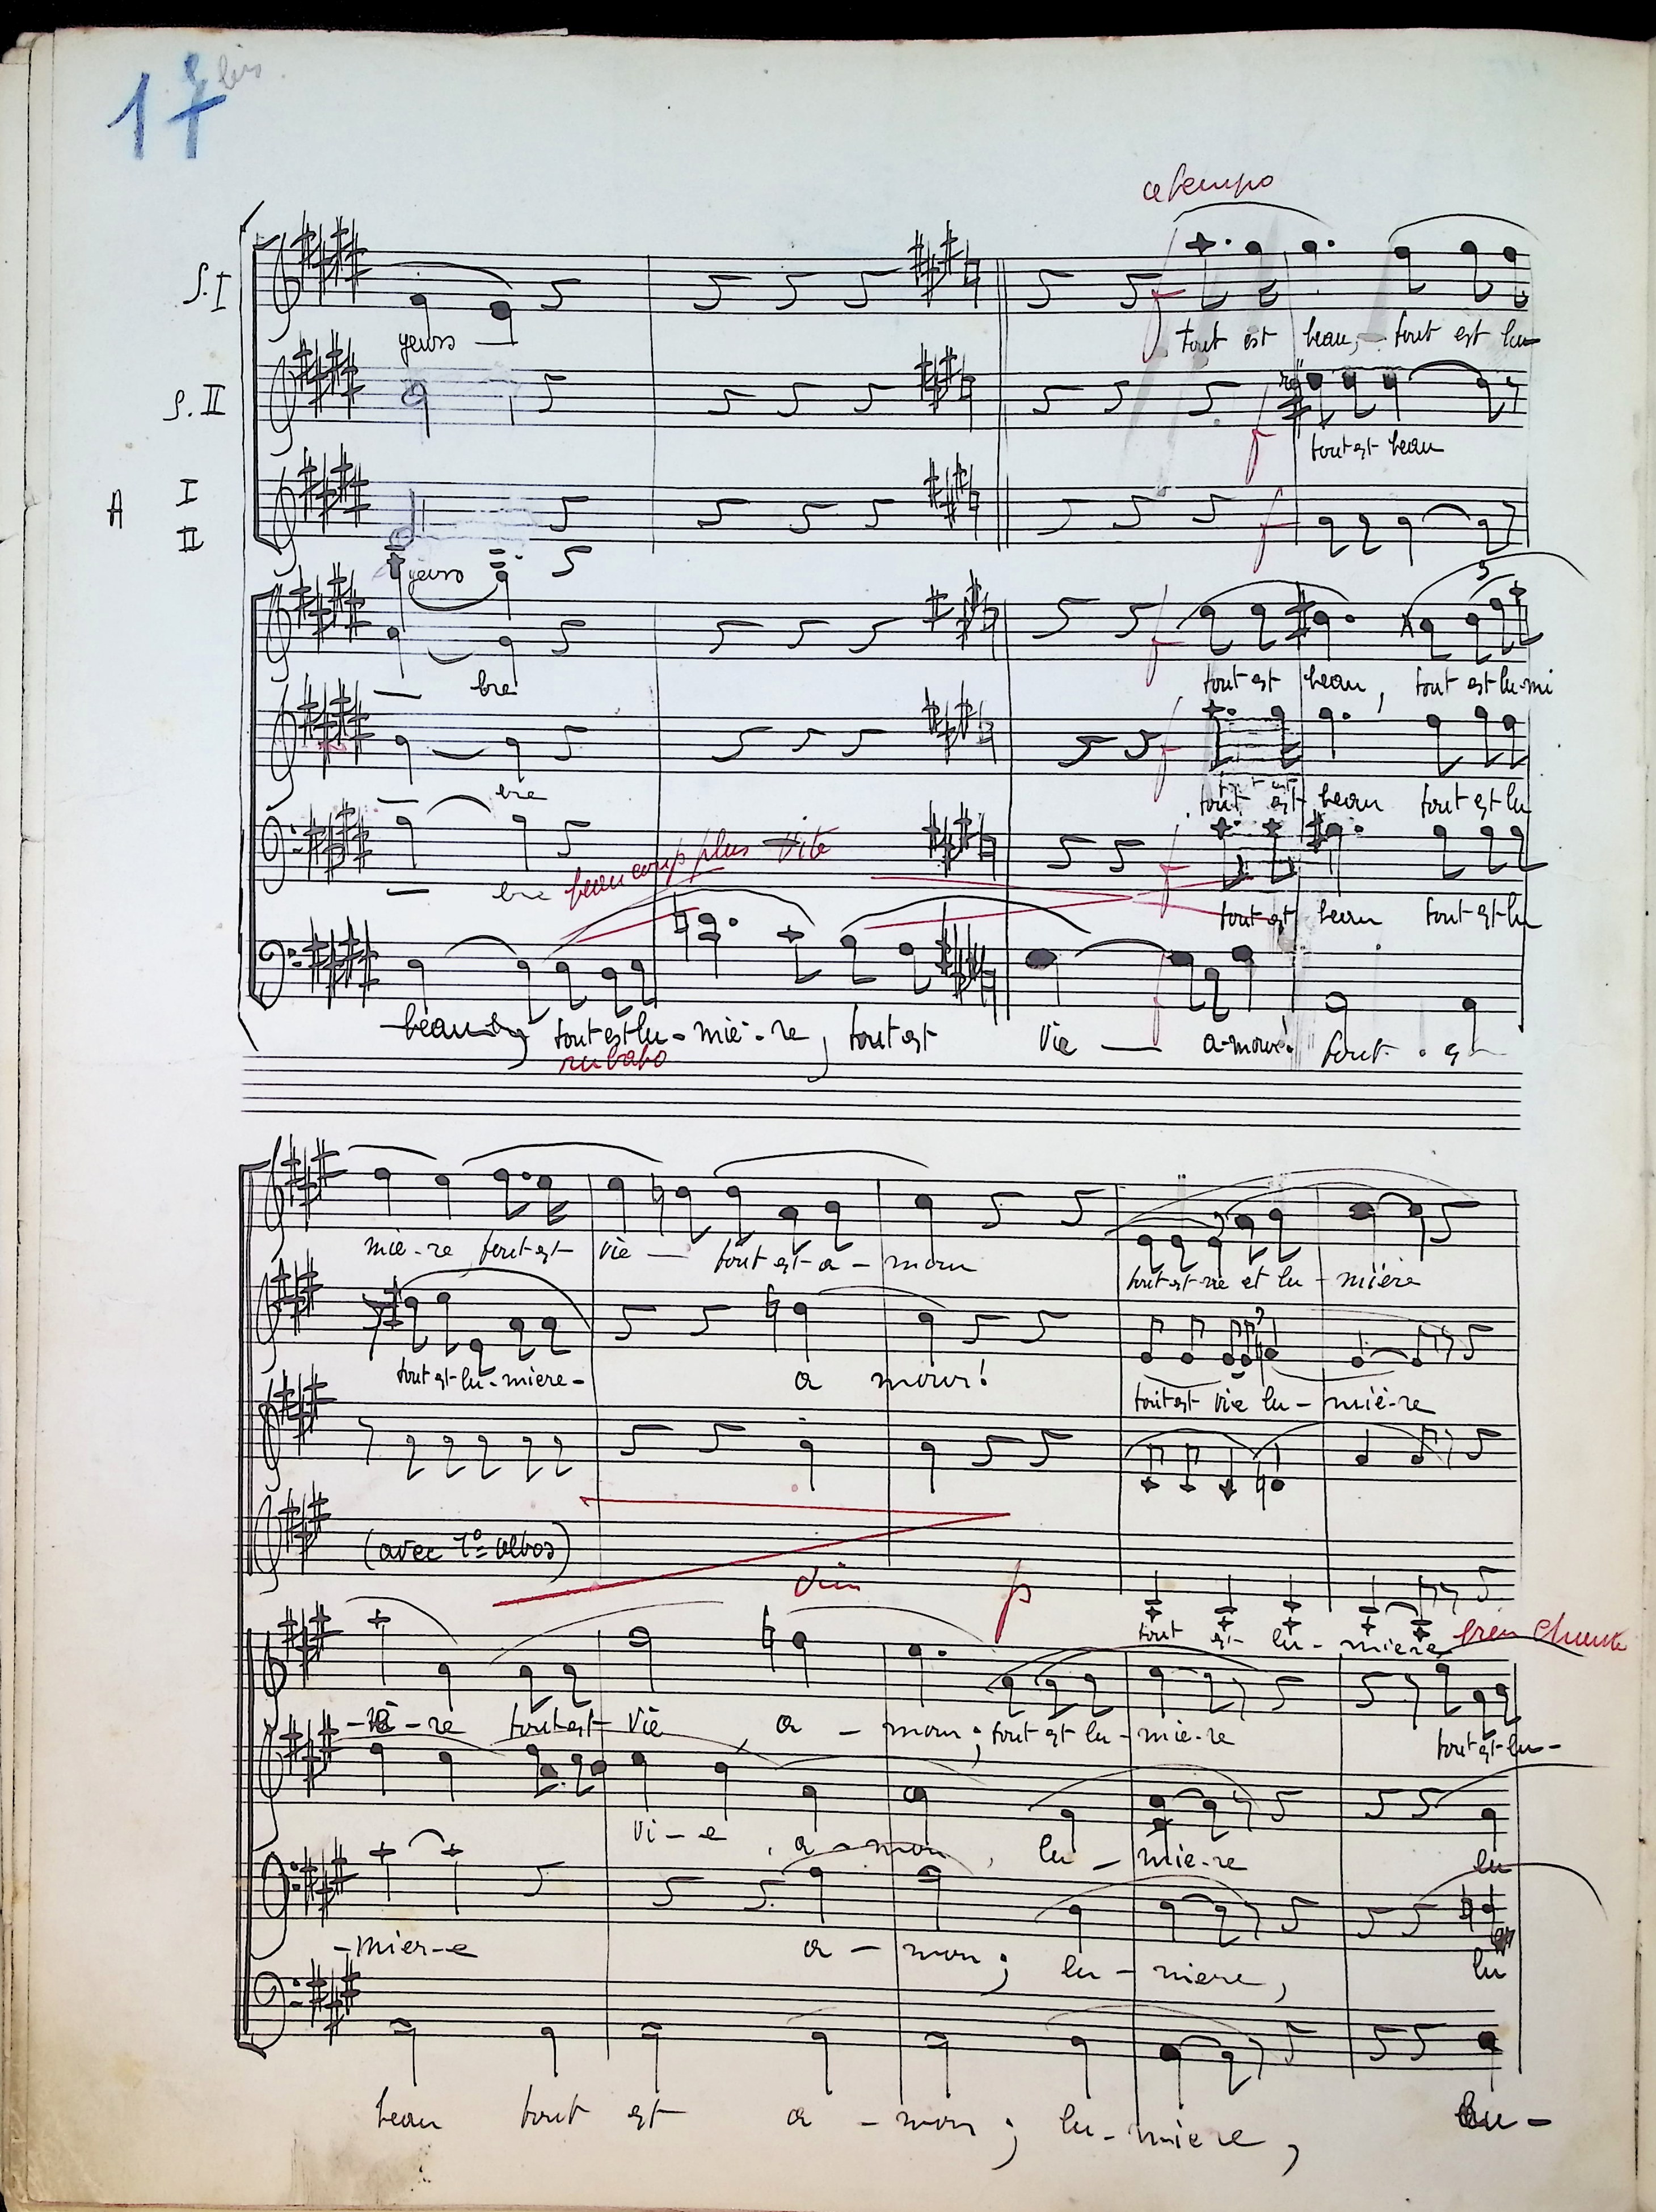 17 bis
a tempo
S. I
yeux — tout est beau, tout est lu
S. II
f
tout est beau
A I
II
f
yeux
bre f tout est beau, tout est lu-mi
3
bre f tout est beau tout est lu
bre beaucoup plus vite f tout est beau tout est lu
beau tout est lu-miè-re, tout est vie — a-mour! tout est
rubato
miè-re tout est vie — tout est a-mour tout est vie et lu-mière
tout est lu-mière- a mour! tout est vie lu-miè-re
(avec 1º altos)
dim p
tout est lu-mière bien chanté
-è-re tout est vie a-mour; tout est lu-miè-re tout est lu-
vi-e, a-mour, lu-miè-re lu
-mièr-e a-mour; lu-mière, lu
beau tout est a-mour; lu-mière, lu-